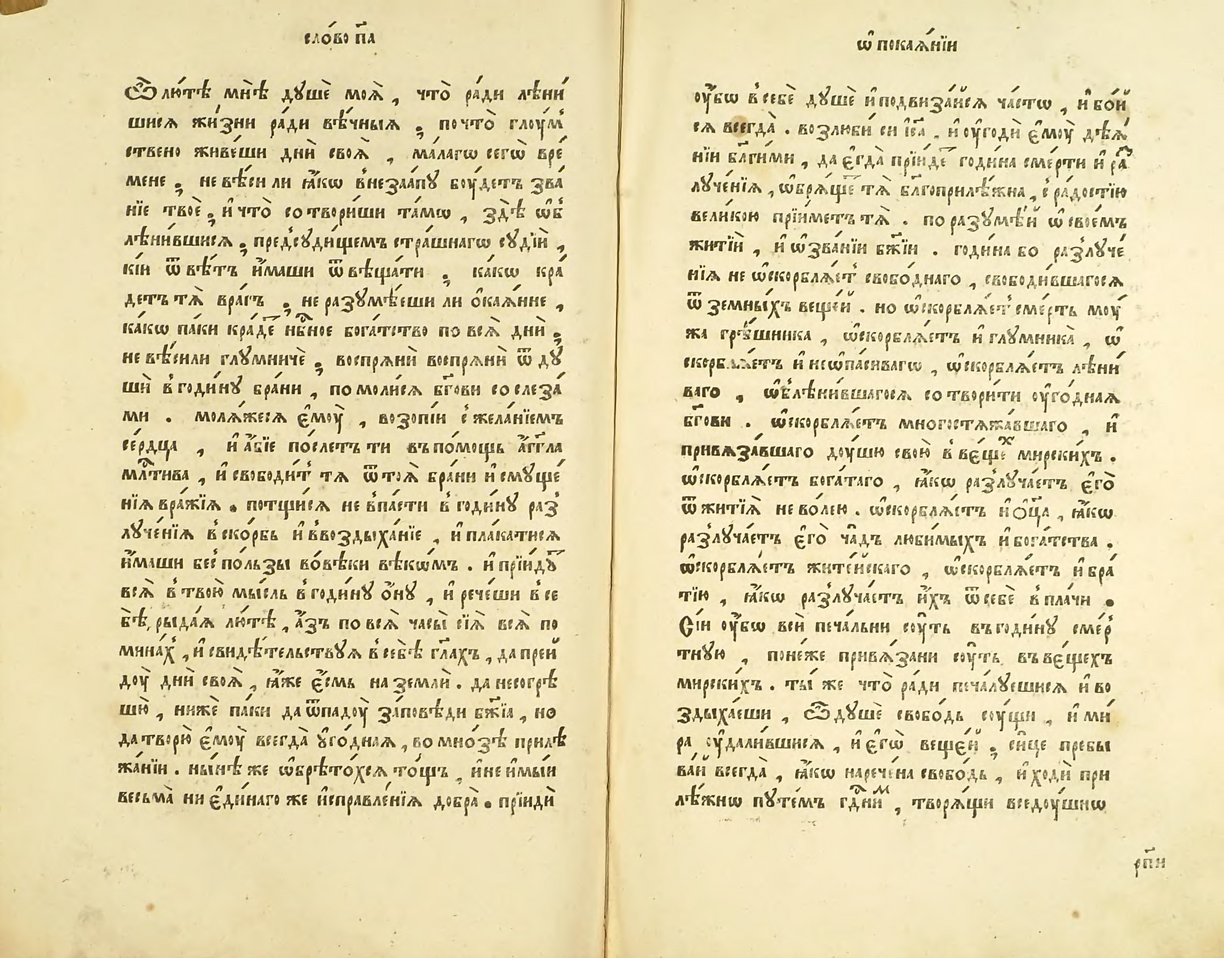 сло́во п҃а
Ѽ лю́тѣ мнѣ̀ дꙋшѐ моѧ̀, что̀ ра́ди лѣни́
шисѧ жи́зни ра́ди вѣ́чныѧ; почто̀ глоум̾
ствено живе́ши дни̑ своѧ̀, ма́лагѡ сегѡ̀ вре́
мене; не вѣ́си ли ꙗ҆́кѡ внеза́апꙋ боу́детъ зва́
нїе твоѐ; и҆ что̀ сотвори́ши та́мѡ, здѣ̀ ѡ҆б̾
лѣни́вшисѧ; пред̾сꙋди́щемъ стра́шнагѡ сꙋдїѝ,
кі́и ѿвѣ́тъ и҆́маши ѿвѣща́ти; ка́кѡ кра́
детъ тѧ̀ вра́гъ; не разꙋмѣ́еши ли ѻ҆каѧ́нне,
ка́кѡ па́ки кра́де нбⷭ҇ное бога́тство по всѧ̀ дни̑;
не вѣ́сили глꙋ́мниче; воспрѧнѝ воспрѧнѝ ѿ дꙋ
шѝ в̾ годи́нꙋ бра́ни, помоли́сѧ бг҃ови со слеза́
ми. молѧ́жесѧ є҆моу̀, возопі́и с̾ жела́нїемъ
се́рдца, и҆ а҆́бїе по́слетъ ти въ по́мощь а҆́гг҃ла
млⷭ҇тива, и҆ свободи́т̾ тѧ ѿ тоѧ̀ бра́ни и҆ смꙋще́
нїѧ вра́жїѧ. потщи́сѧ не впа́сти в̾ годи́нꙋ раз̾
лꙋче́нїѧ в̾ ско́рбь и҆ в̾воздыха́нїе, и҆ пла́катисѧ
и҆́маши бес̾ по́льзы во вѣ́ки вѣкѡ́мъ. и҆ прїи́дꙋ
всѧ̀ в̾ твою̀ мы́сль в̾ годи́нꙋ ѻ҆́нꙋ, и҆ рече́ши в̾ се
бѣ̀, рыда́ѧ лю́тѣ, а҆́зъ по всѧ̀ часы̀ сїѧ̀ всѧ̀ по
мина́х̾, и҆ свидѣ́тельствꙋѧ в̾ себѣ̀ гл҃ахъ, да преи́
доу̀ дни̑ своѧ̀, ꙗ҆́же є҆́смь на землѝ. да несогрѣ
шю̀, нижѐ па́ки да ѿпадоу̀ за́повѣди бж҃їа, но
да творю̀ є҆моу̀ всегда̀ ᲂу҆го́днаѧ, во мно́зѣ прилѣ
жа́нїи. ны́нѣ же ѡ҆брѣто́хсѧ то́щъ, и҆ не и҆мы́и
весьма̀ ни є҆ди́наго же и҆справле́нїѧ добра̀. прїидѝ
ѡ҆ покаѧ́нїи
оу҆́бѡ в̾ себѐ дꙋшѐ и҆ подвиза́исѧ ча́стѡ, и҆ бо́и
сѧ всегда̀. возлюби́ си і҆с҃а, и҆ оу҆годѝ є҆моу̀ дѣѧ́
нїи бл҃ги́ми, да є҆гда̀ прїи́де годи́на сме́рти и҆ ра
лꙋче́нїѧ, ѡ҆брѧ́ще тѧ̀ бл҃гоприлѣ́жна, с̾ ра́достїю
вели́кою прїи́метъ тѧ̀. по разꙋмѣ́й ѡ҆ свое́мъ
житїѝ, и҆ ѡ҆ зва́нїи бж҃їи. годи́на бо раз̾лꙋче́
нїѧ не ѡ҆скорблѧ́ет̾ свобо́днаго, свободи́вшагосѧ
ѿ земны́хъ веще́й. но ѡ҆скорблѧ́ет̾ сме́рть моу́
жа грѣ́шника, ѡ҆скорблѧ́етъ и҆ глꙋмника̀, ѡ҆
скорблѧ́етъ и҆ неѡ҆па́сивагѡ, ѡ҆скорблѧ́етъ лѣни́
ваго, ѡ҆блѣни́вшагосѧ сотвори́ти оу҆го́днаѧ
бг҃ови. ѡ҆скорблѧ́етъ многостѧжа́вшаго, и҆
привѧза́вшаго доушю̀ свою̀ в̾ ве́щеⷯ мирски́хъ.
ѡ҆скорблѧ́етъ бога́таго, ꙗ҆́кѡ раз̾лꙋча́етъ є҆го̀
ѿ житїѧ̀ не во́лею. ѡ҆скорблѧ́етъ и҆ ѻ҆ц҃а̀, ꙗ҆́кѡ
раз̾лꙋча́етъ є҆го̀ ча́дъ люби́мыхъ и҆ бога́тства.
ѡ҆скорблѧ́етъ жите́йскаго, ѡ҆скорблѧ́етъ и҆ бра́
тїю, ꙗ҆́кѡ раз̾лꙋча́етъ и҆́хъ ѿ себѐ в̾ пла́чи.
Сі́и оу҆́бѡ всѝ печа́льни соу́ть въ годи́нꙋ сме́р̾
тнꙋю, поне́же привѧ́зани соу́ть въ ве́щехъ
мирски́хъ. ты́ же что̀ ра́ди печа́лꙋешисѧ и҆ во
здыха́еши, ѽ дꙋшѐ свобо́дь соу́щи, и҆ ми́
ра оудали́вшисѧ, и҆ є҆гѡ̀ веще́й; си́це пребы
ва́й всегда̀, ꙗ҆́кѡ нарече́на свобо́дь, и҆ ходѝ при
лѣ́жнѡ пꙋте́мъ гдⷭ҇ниⷨ, творѧ́щи вседоу́шнѡ
рп҃и